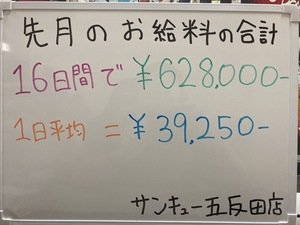 先月のお給料の合計
16日間で ¥628,000-
1日平均 = ¥39,250-
サンキュー五反田店